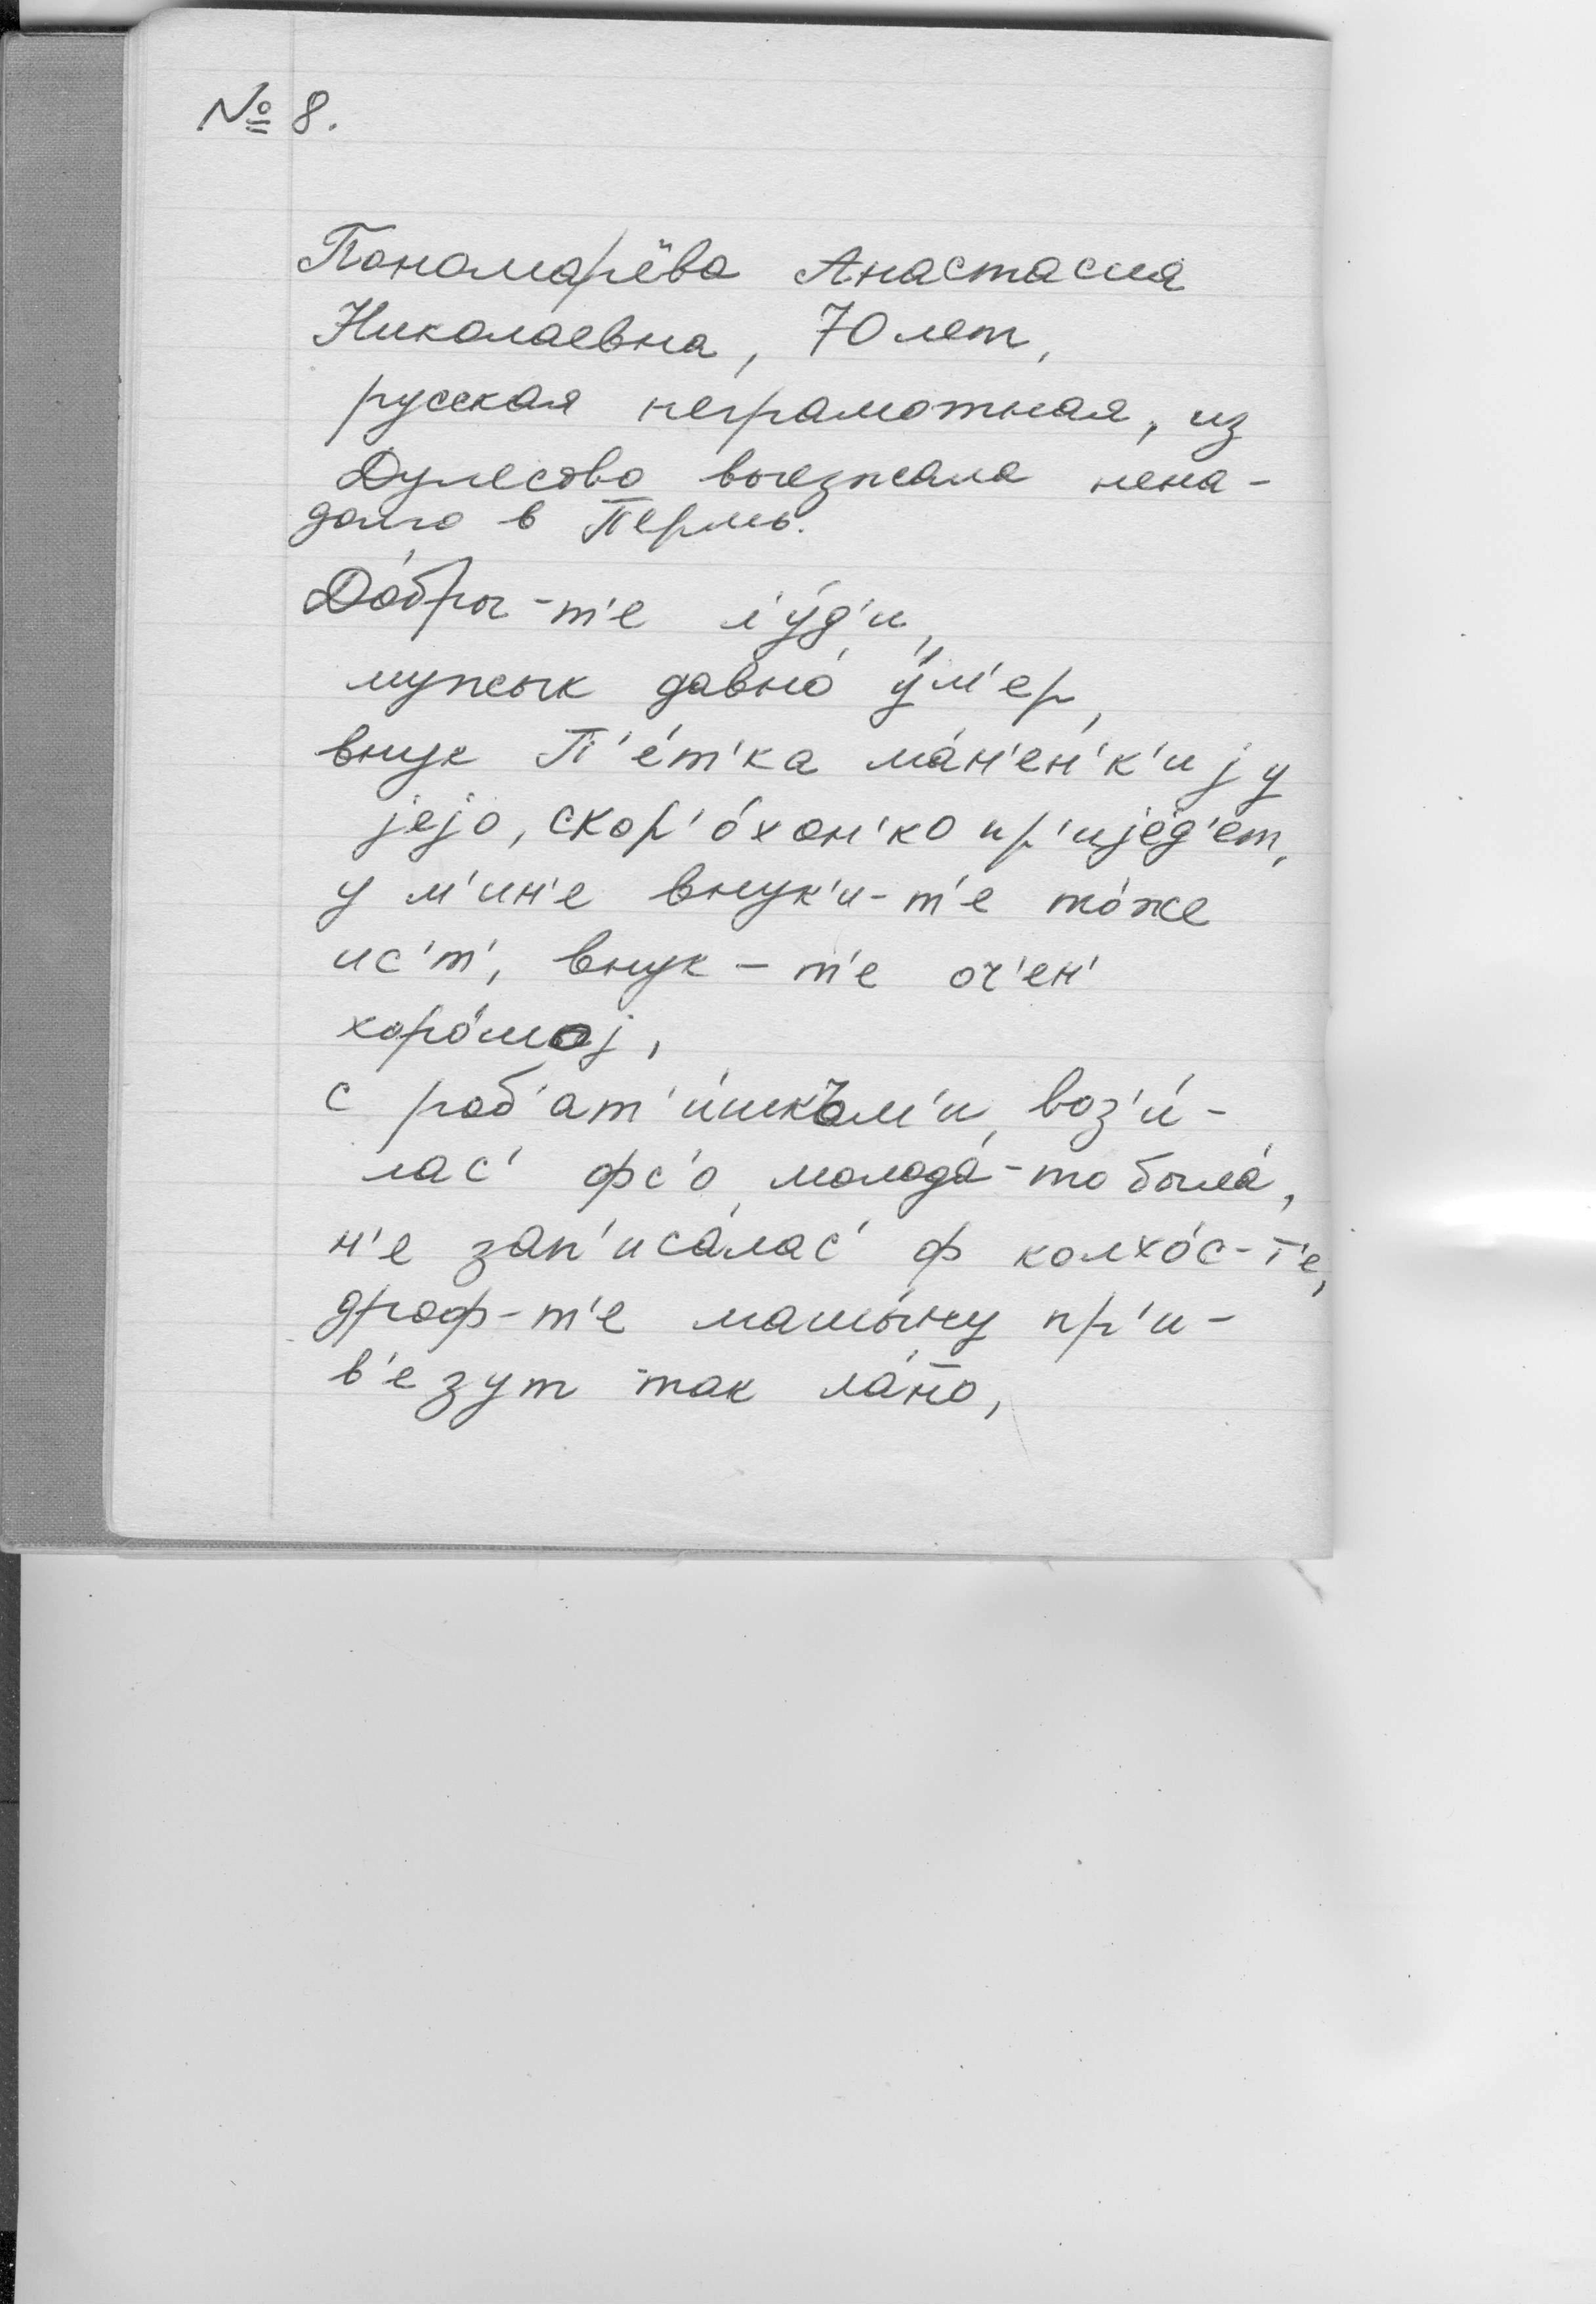 № 8.
Пономарёва Анастасия
Николаевна, 70 лет,
русская неграмотная, из
Дулесово выезжала нена-
долго в Пермь.
До́бры-т'е л'у́д'и,
мужык давно́ у́м'ер,
внук П'е́т'ка ма́н'ен'к'иj у
jejо, скор'о́хон'ко пр'иjе́д'ет,
у м'ин'е внук'и-т'е то́же
ис'т', внук-т'е оч'ен'
хоро́шоj,
с роб'ат'и́шкъм'и, воз'и́-
лас' фс'о, молода́-то была́,
н'е зап'иса́лас' ф колхо́с-т'е,
дроф-т'е машы́ну пр'и-
в'езут так ла́но,